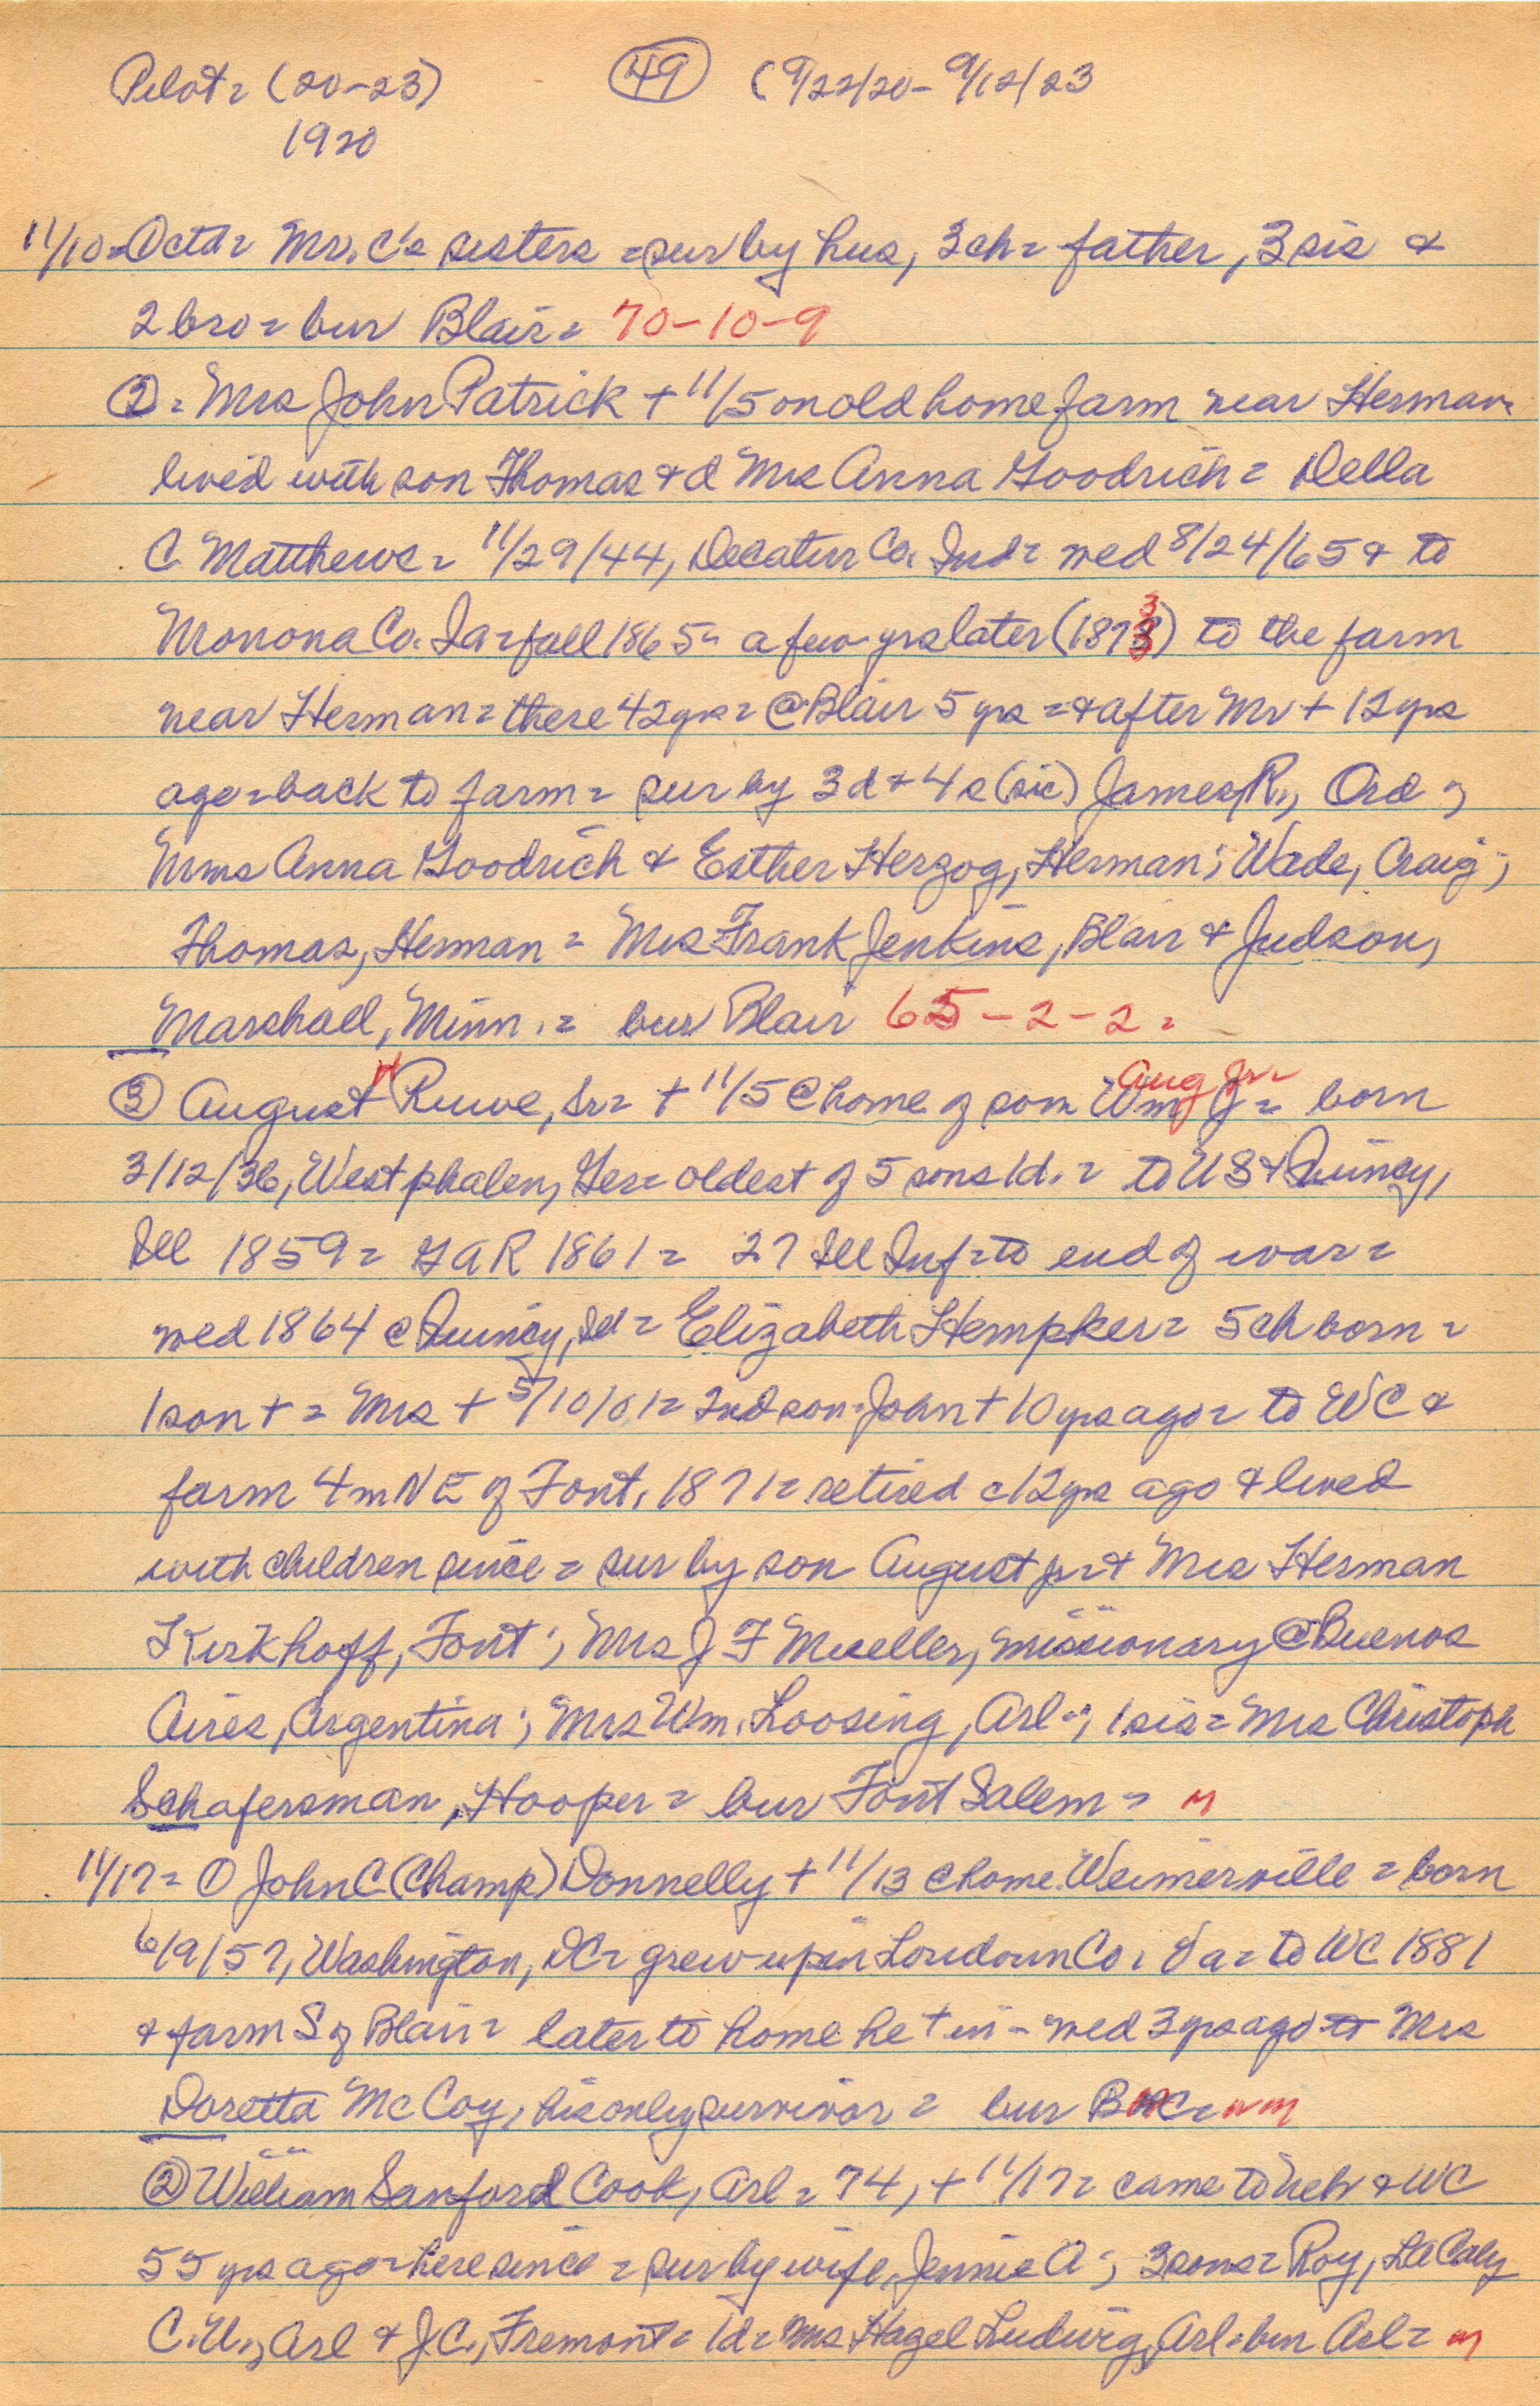 Pilot = (20-23) 49 (9/22/20 - 9/12/23
1920
11/10 = Octd = Mr. C's sisters = sur by hus, 3 ch = father, 3 sis &
2 bro = bur Blair = 70-10-9
② = Mrs John Patrick + 11/5 on old home farm near Herman
lived with son Thomas & d Mrs Anna Goodrich = Della
C. Matthews = 11/29/44, Decatur Co. Ind = wed 8/24/65 & to
Monona Co. Ia = fall 1865 = a few yrs later (1873) to the farm
near Herman = there 42 yrs = @ Blair 5 yrs = & after Mr + 12 yrs
ago = back to farm = sur by 3 d & 4 s (sic) James R., Ord;
Mms Anna Goodrich & Esther Herzog, Herman; Wade, Craig;
Thomas, Herman = Mrs Frank Jenkins, Blair & Judson,
Marshall, Minn. = bur Blair 65-2-2 =
③ August H Ruwe, Sr = + 11/5 @ home of son Wm J Aug Jr = born
3/12/36, Westphalen, Ger = oldest of 5 sons 1 d. = to US & Quincy,
Ill 1859 = GAR 1861 = 27 Ill Inf = to end of war =
wed 1864 @ Quincy, Ill = Elizabeth Hempker = 5 ch born =
1 son + = Mrs + 5/10/01 = 2nd son = John + 10 yrs ago = to WC &
farm 4 m NE of Font. 1871 = retired c 12 yrs ago & lived
with children since = sur by son August Jr = & Mrs Herman
Kirkhoff, Font; Mrs J F Mueller, missionary @ Buenos
Aires, Argentina; Mrs Wm. Loosing, Arl =; 1 sis = Mrs Christoph
Schafersman, Hooper = bur Font Salem = m
11/17 = ① John C (Champ) Donnelly + 11/13 @ home Weimerville = born
6/9/57, Washington, DC = grew up in Loudoun Co. Va = to WC 1881
& farm S of Blair = later to home he + in - wed 3 yrs ago to Mrs
Doretta McCoy, his only survivor = bur B = nm
② William Sanford Cook, Arl = 74, + 11/17 = came to Neb & WC
55 yrs ago = here since = sur by wife, Jennie A; 3 sons = Roy,
C. U., Arl & J.C., Fremont = 1 d = Mrs Hazel Ludwig, Arl = bur Arl = m